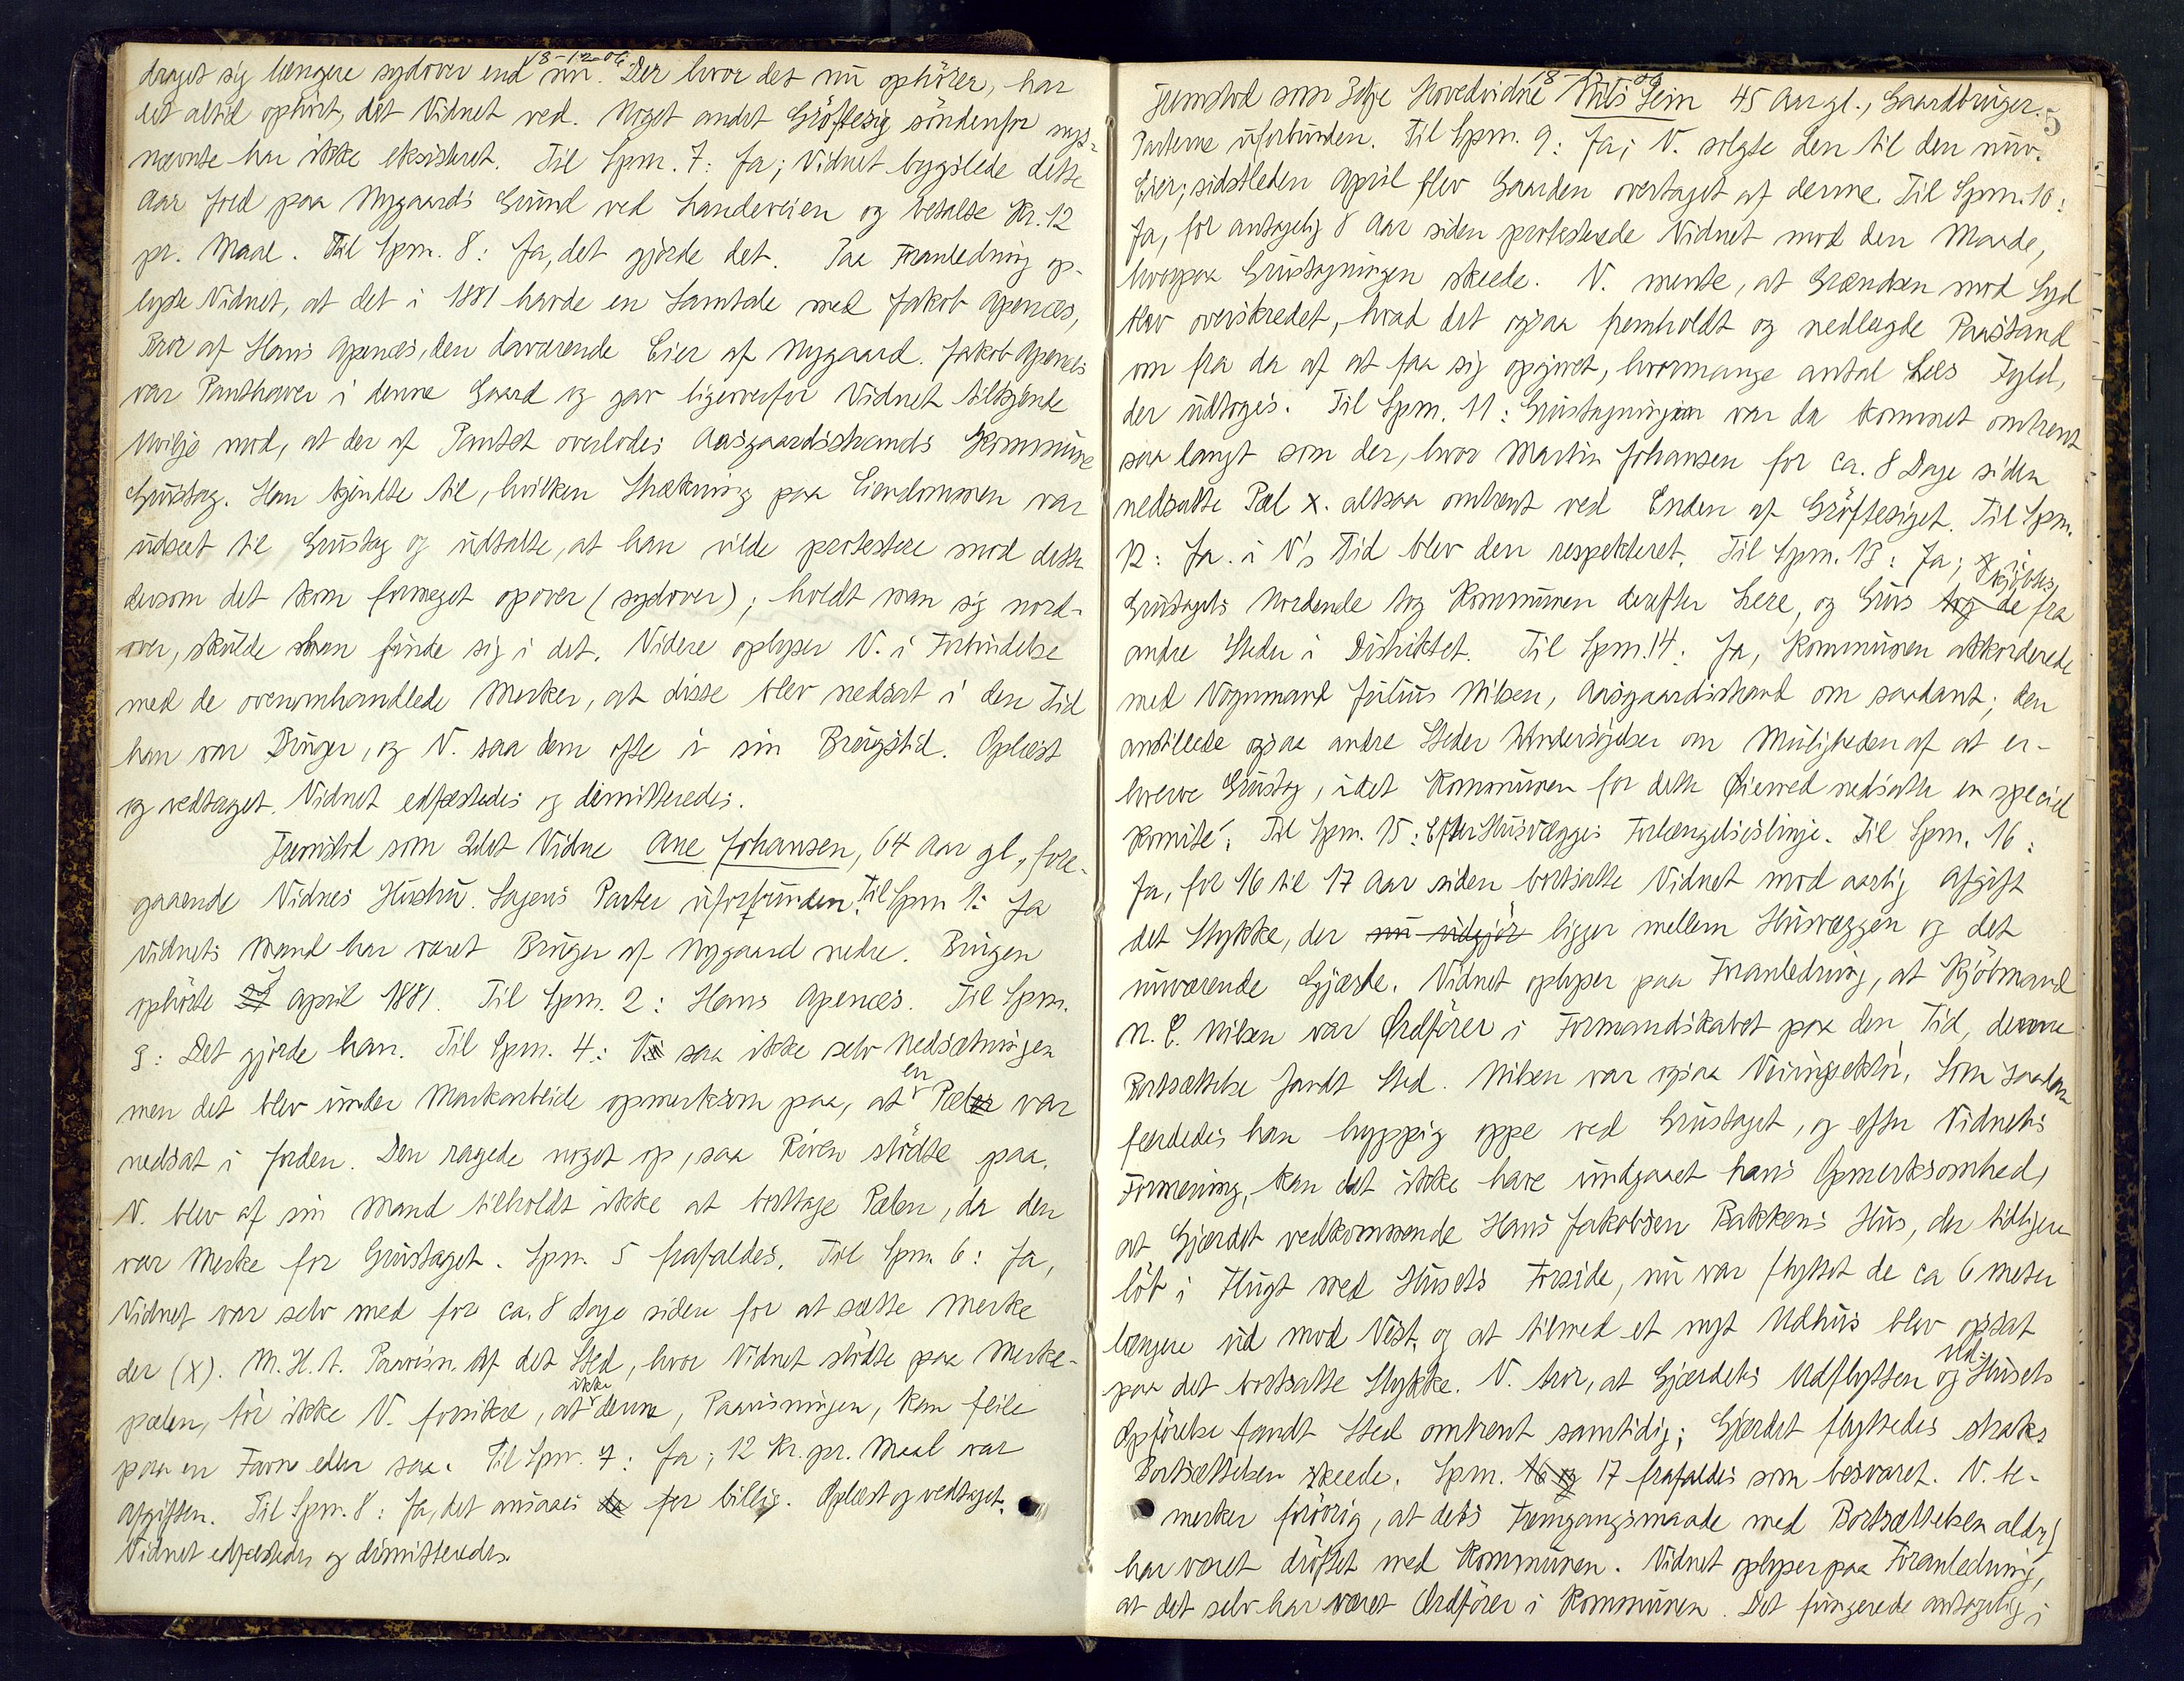 18-12-06.
draget sig længere sydover end nu. Der hvor det nu ophörer, har
det altid ophört, det Vidnet ved. Noget andet Gröftesig söndenfor nys-
nævnte har ikke eksisteret. Til Spm. 7: Ja; Vidnet bygslede dette
Aar Jord paa Nygaards Grund ved Landeveien og betalte Kr. 12
pr. Maal. Til Spm. 8: Ja, det gjorde det. Paa Foranledning op-
lyste Vidnet, at det i 1881 havde en Samtale med Jakob Apenæs,
Bror af Hans Apenæs, den daværende Eier af Nygaard. Jakob Apenæs
var Panthaver i denne Gaard og gav ligeoverfor Vidnet tilkjende
Uvilje mod, at der af Pantet overlodes Aasgaardsstrands Kommune
Grustag. Han kjendte til, hvilken Strækning paa Eiendommen var
udseet til Grustag og udtalte, at han vilde protestere mod dette
dersom det kom formeget opover (sydover); holdt man sig nord-
over, skulde han finde sig i det. Videre oplyser V. i Forbindelse
med de ovenomhandlede Merker, at disse blev nedsat i den Tid
han var Bruger, og V. saa dem ofte i sin Brugstid. Oplæst
og vedtaget. Vidnet edfæstedes og dimitteredes.
Fremstod som 2det Vidne Ane Johansen, 64 Aar gl., fore-
gaaende Vidnes Hustru. Sagens Parter uforbunden. Til Spm 1: Ja
Vidnets Mand har været Bruger af Nygaard nedre. Brugen
ophörte April 1881. Til Spm. 2: Hans Apenæs. Til Spm.
3: Det gjorde han. Til Spm. 4: V. saa ikke selv Nedsætningen
men det blev under Markarbeide opmerksom paa, at en Pæl var
nedsat i Jorden. Den ragede noget op, saa Riven stödte paa.
V. blev af sin Mand tilholdt ikke at borttage Pælen, da den
var Merke for Grustaget. Spm. 5 frafaldes. Til Spm. 6: Ja,
Vidnet var selv med for ca. 8 Dage siden for at sætte Merke
der (X). M. H. t. Paavisn. af det Sted, hvor Vidnet stödte paa Merke-
pælen, tör ikke V. forsikre, at ikke denne, Paavisningen, kan feile
paa en Favn eller saa. Til Spm. 7: Ja; 12 Kr. pr. Maal var
Afgiften. Til Spm. 8: Ja, det ansaaes for billig. Oplæst og vedtaget.
Vidnet edfæstedes og dimitteredes.
18-12-06
5
Fremstod som 3dje Hovedvidne Nils Lein 45 Aar gl., Gaardbruger.
Parterne uforbunden. Til Spm. 9: Ja; V. solgte den til den nuv.
Eier; sidstleden April blev Gaarden overtaget af denne. Til Spm. 10:
Ja, for antagelig 8 Aar siden protesterede Vidnet mod den Maade,
hvorpaa Grustagningen skeede. V. mente, at Grændsen mod Syd
blev overskredet, hvad det ogsaa fremholdt og nedlagde Paastand
om fra da af at faa sig opgivet, hvormange antal Læs Fyld,
der udtoges. Til Spm. 11: Grustagningen var da kommet omtrent
saa langt som der, hvor Martin Johansen for ca. 8 Dage siden
nedsatte Pæl x. altsaa omtrent ved Enden af Gröftesiget. Til Spm.
12: Ja. i V's Tid blev den respekteret. Til Spm. 13: Ja; i
Grustagets Nordende tog Kommunen derefter Lere, og Grus kjöbtes fra
andre Steder i Distriktet. Til Spm. 14: Ja, Kommunen akkorderede
med Vognmand Julius Nilsen, Aasgaardsstrand om saadant; den
anstillede ogsaa andre Steder Undersögelser om Muligheden af at er-
hverve Grustag, idet Kommunen for dette Öiemed nedsatte en speciel
Komité. Til Spm. 15: Efter Husvægges Forlængelseslinje. Til Spm. 16:
Ja, for 16 til 17 Aar siden bortsatte Vidnet mod aarlig Afgift
det Stykke, der nu udgjör ligger mellem Husvæggen og det
nuværende Gjærde. Vidnet oplyser paa Foranledning, at Kjöbmand
N. C. Nilsen var Ordförer i Formandskabet paa den Tid, denne
Bortsættelse fandt Sted. Nilsen var ogsaa Veiinspektör. Som saadan
færdedes han hyppig oppe ved Grustaget, og efter Vidnets
Formening, kan det ikke have undgaaet hans Opmerksomhed,
at Gjærdet vedkommende Hans Jakobsen Bakkens Hus, der tidligere
löb i Flugt med Husets Forside, nu var flyttet de ca 6 Meter
længere ud mod Vest, og at tilmed et nyt Udhus blev opsat
paa det bortsatte Stykke. V. tror, at Gjærdets Udflytten og Ud-Husets
Opförelse fandt Sted omtrent samtidig; Gjærdet flyttedes straks
Bortsættelsen skeede. Spm. 16 og 17 frafaldes som besvaret. V. be-
merker forövrig, at dets Fremgangsmaade med Bortsættelsen aldrig
har været dröftet med Kommunen. Vidnet oplyser paa Foranledning,
at det selv har været Ordförer i Kommunen. Det fungerede antagelig i